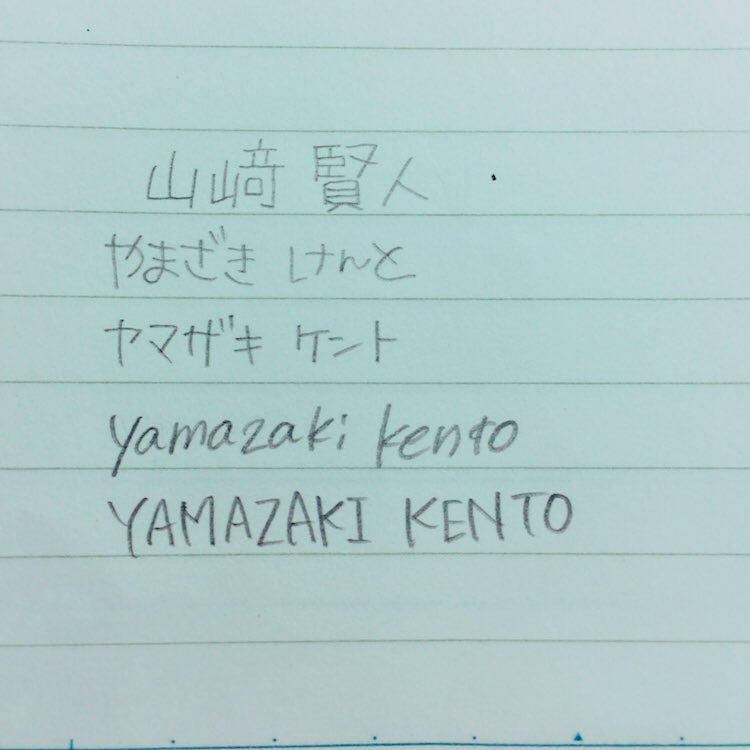 山﨑 賢人
やまざき けんと
ヤマザキ ケント
yamazaki kento
YAMAZAKI KENTO